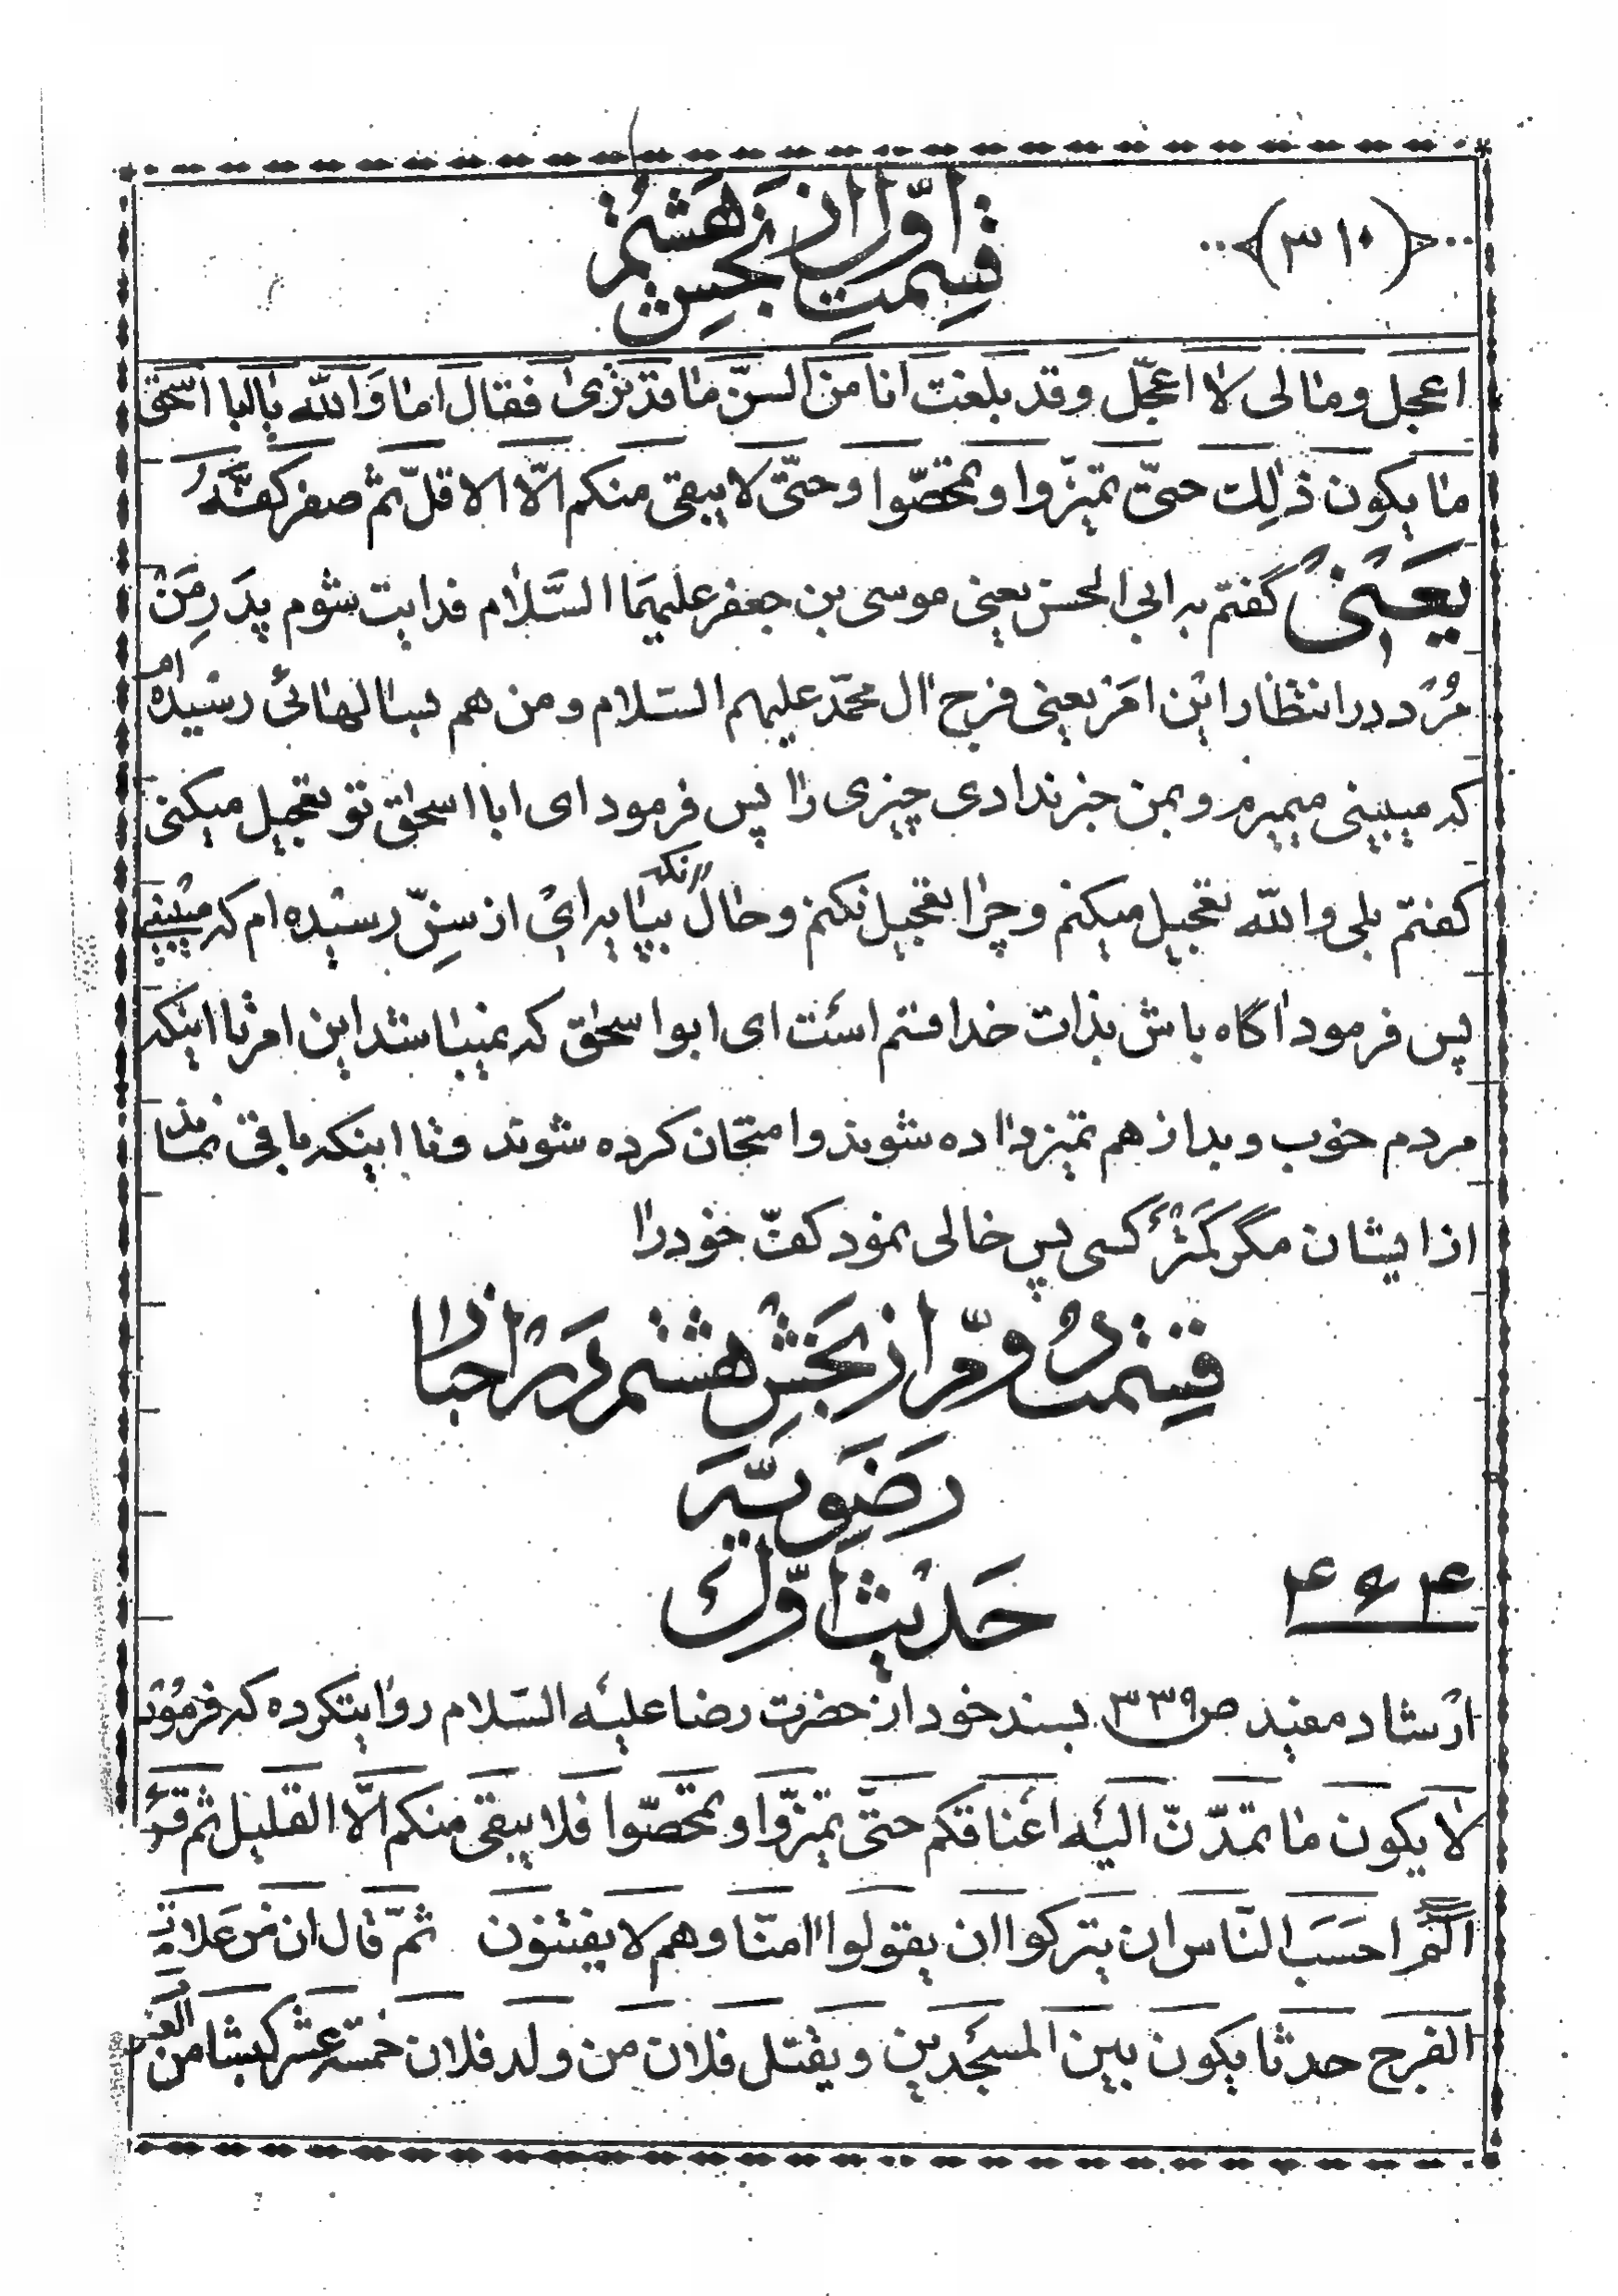 (۳۱۰)
قسمت اوّل از بخش هشتم
اعجل و مالى لا اعجّل وقد بلغت انا من السنّ ما قد ترى فقال اما والله يا ابا اسحق
ما يكون ذلك حتىّ تميّزوا وتمحّصوا وحتّى لا يبقى منكم الّا الاقلّ ثم صفر كفّه
يعنى گفتم به ابى الحسن يعنى موسى بن جعفر عليهما السّلام فدايت شوم پدر من
مُرد در انتظار اين امر يعنى فرج ال محمّد عليهم السّلام و من هم بسالهائى رسيده‌ام
كه ميبينى ميميرم و بمن خبر ندادى چيزى را پس فرمود اى ابا اسحق تو تعجيل ميكنى
گفتم بلى والله تعجيل ميكنم و چرا تعجيل نكنم و حال آنكه بپايه‌اى از سنّ رسيده‌ام كه ميبينى
پس فرمود آگاه باش بذات خدا قسم است اى ابو اسحق كه نميباشد اين امر تا اينكه
مردم خوب و بد از هم تميز داده شوند و امتحان كرده شوند و تا اينكه باقى نماند
از ايشان مگر كمتر كسى پس خالى نمود كفّ خود را
قسمت دوّم از بخش هشتم در اخبار
رضويّه
حديث اوّل
۴۶۴
ارشاد مفيد ص ۳۳۹ بسند خود از حضرت رضا عليه السّلام روايتكرده كه فرمود
لا يكون ما تمدّنّ اليه اعناقكم حتّى تميّزوا وتمحّصوا فلا يبقى منكم الّا القليل ثم قرء
الٓمٓ احسب النّاس ان يتركوا ان يقولوا امنّا وهم لا يفتنون ثمّ قال ان من علامة
الفرج حدثا يكون بين المسجدين ويقتل فلان من ولد فلان خمسة عشر كبشا من العرب